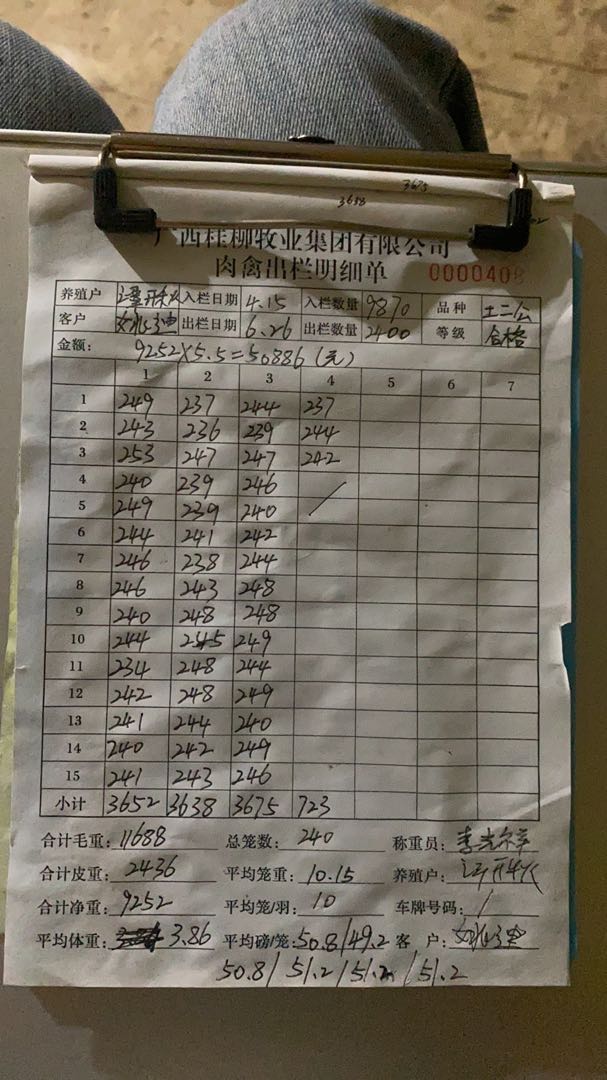 3675
3638
广西桂柳牧业集团有限公司
肉禽出栏明细单 000040
养殖户 入栏日期 4.15 入栏数量 9870 品种 土二公
客户 出栏日期 6.26 出栏数量 2400 等级 合格
金额: 9252×5.5=50886(元)
1 2 3 4 5 6 7
1 249 237 244 237
2 243 236 239 244
3 253 247 247 242
4 240 239 246
5 249 239 240
6 244 241 242
7 246 238 244
8 246 243 248
9 240 248 248
10 244 245 249
11 234 248 244
12 242 248 249
13 241 244 240
14 240 242 249
15 241 243 246
小计 3652 3638 3675 723
合计毛重: 11688 总笼数: 240 称重员:
合计皮重: 2436 平均笼重: 10.15 养殖户:
合计净重: 9252 平均笼/羽: 10 车牌号码: /
平均体重: 3.86 平均磅/笼: 50.8/49.2 客 户:
50.8/51.2/51.2/51.2